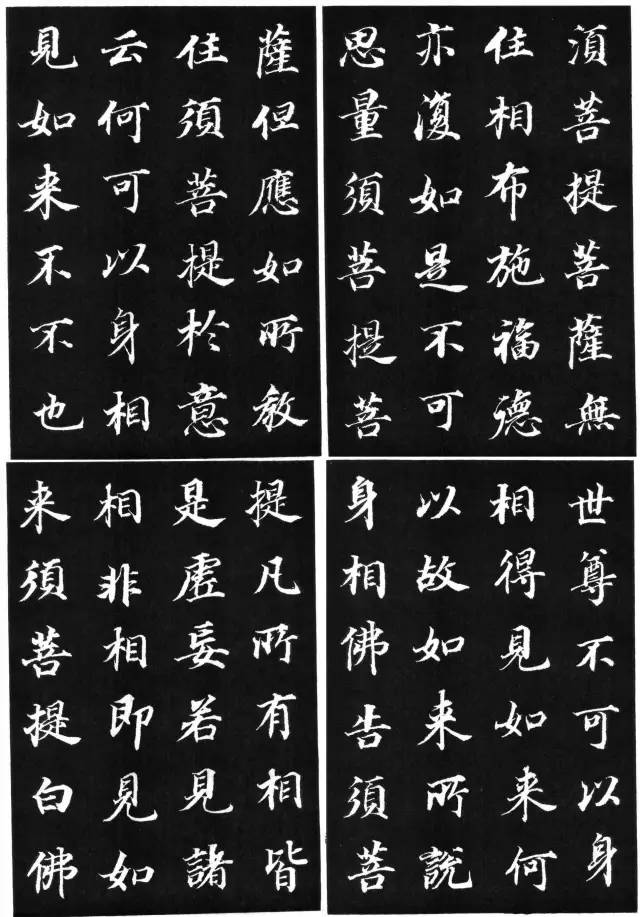 須菩提菩薩無
住相布施福德
亦復如是不可
思量須菩提菩
薩但應如所教
住須菩提於意
云何可以身相
見如来不不也
世尊不可以身
相得見如来何
以故如来所説
身相佛告須菩
提凡所有相皆
是虛妄若見諸
相非相即見如
来須菩提白佛